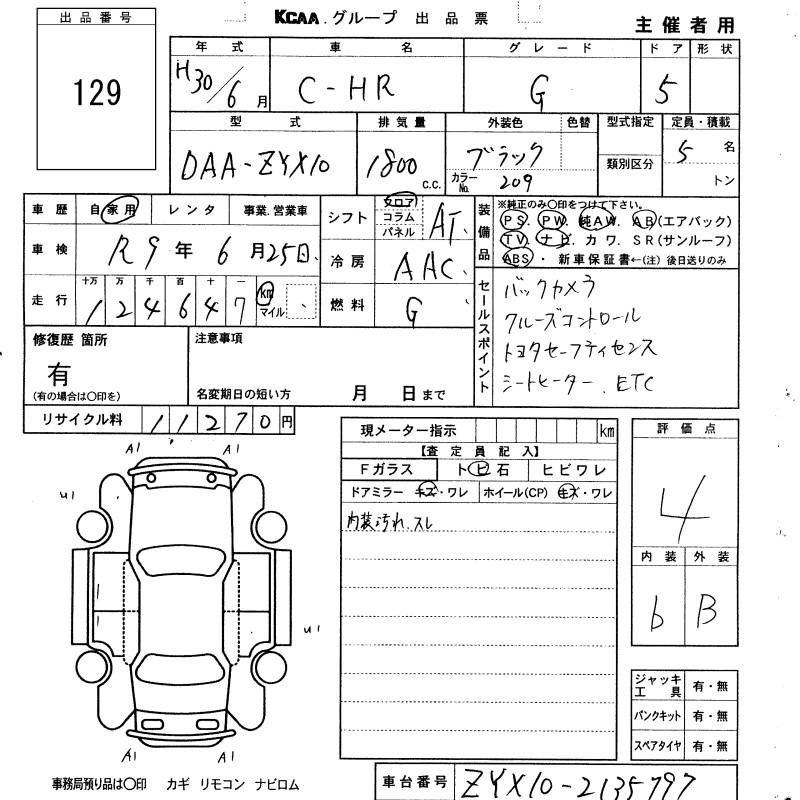 KCAA グループ 出品票
主催者用
出品番号
129
年式 車名 グレード ドア 形状
H30/6月 C-HR G 5
型式 排気量 外装色 色替 型式指定 定員・積載
DAA-ZYX10 1800 C.C. ブラック カラーNo. 209 類別区分 5名 トン
車歴 自家用 レンタ 事業.営業車
車検 R9年6月25日
走行 十万 万 千 百 十 一
124647 km マイル
シフト フロア コラム パネル AT
冷房 AAC
燃料 G
装備品 ※純正のみ〇印をつけて下さい。
PS. PW. 純AW. AB(エアバック)
TV. ナビ. カワ. SR(サンルーフ)
ABS ・ 新車保証書←(注)後日送りのみ
セールスポイント
バックカメラ
クルーズコントロール
トヨタセーフティセンス
シートヒーター. ETC
修復歴 箇所
有
(有の場合は〇印を)
注意事項
名変期日の短い方 月 日まで
リサイクル料 11270円
現メーター指示 km
【査定員記入】
Fガラス トビ石 ヒビワレ
ドアミラー キズ・ワレ ホイール(CP) キズ・ワレ
内装汚れ.スレ
評価点
4
内装 外装
b B
A1 A1
U1
U1
A1 A1
ジャッキ工具 有・無
パンクキット 有・無
スペアタイヤ 有・無
事務局預り品は〇印 カギ リモコン ナビロム
車台番号 ZYX10-2135797